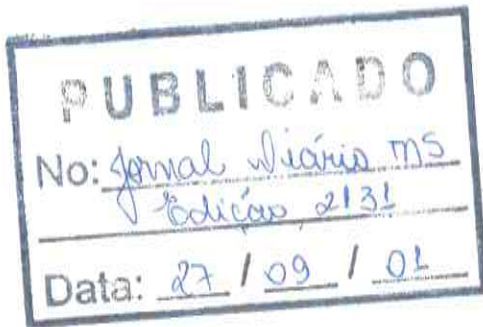 PUBLICADO
No: Jornal Diário MS
Edição 2131
Data: 27 / 09 / 01